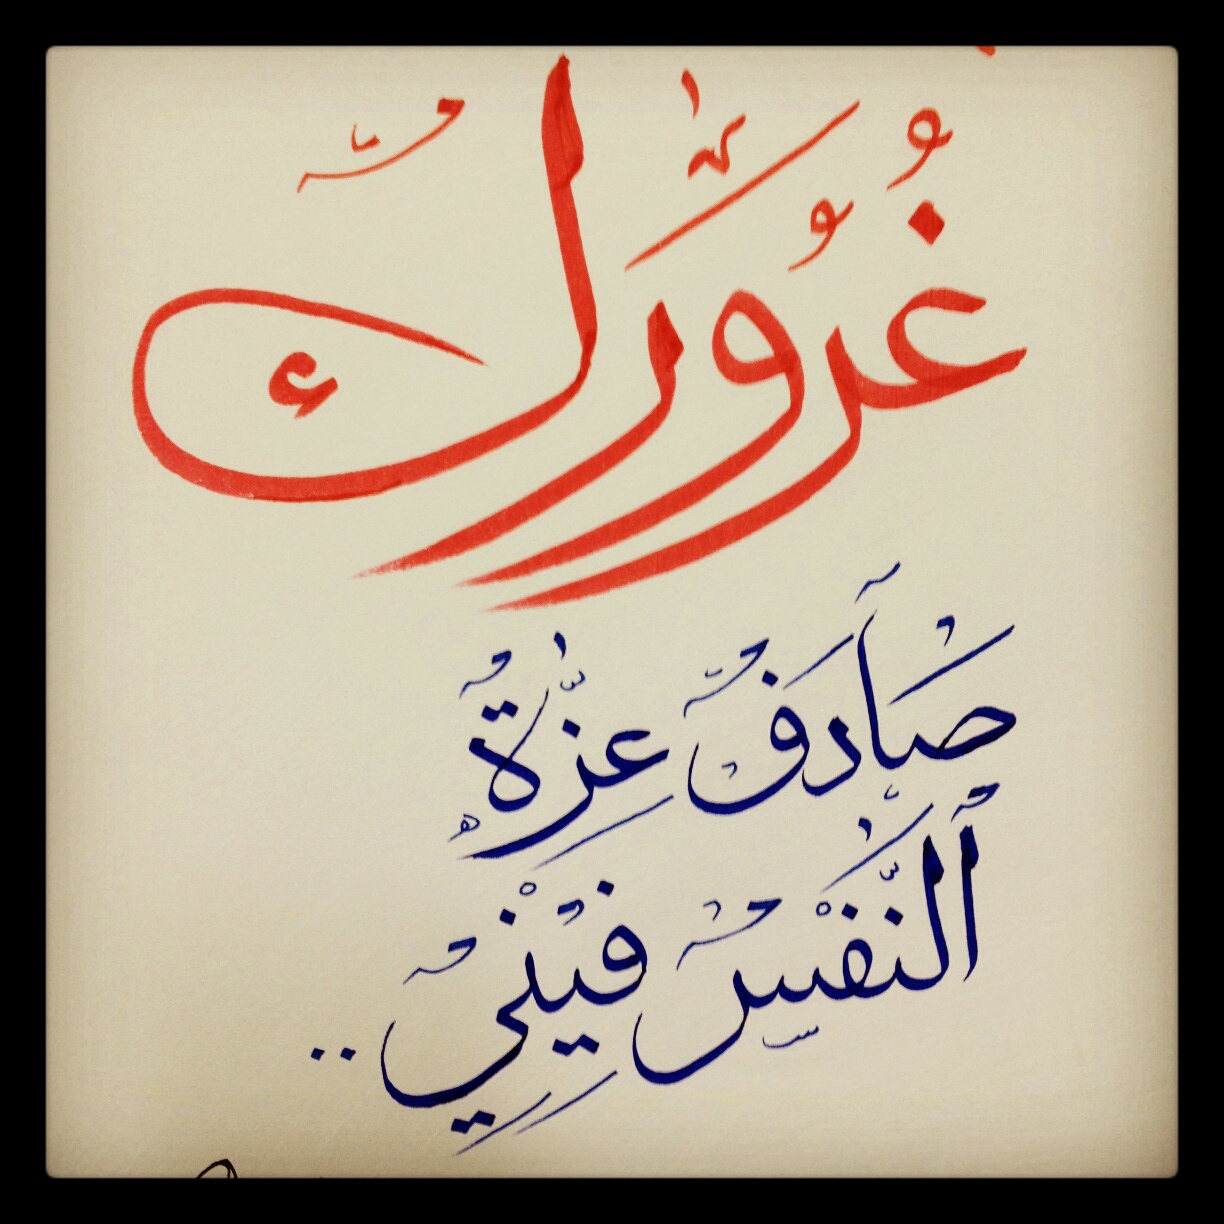 غُرُورَك
صَادَف عِزَّة
ٱلنَّفْس فِيْنِي ..